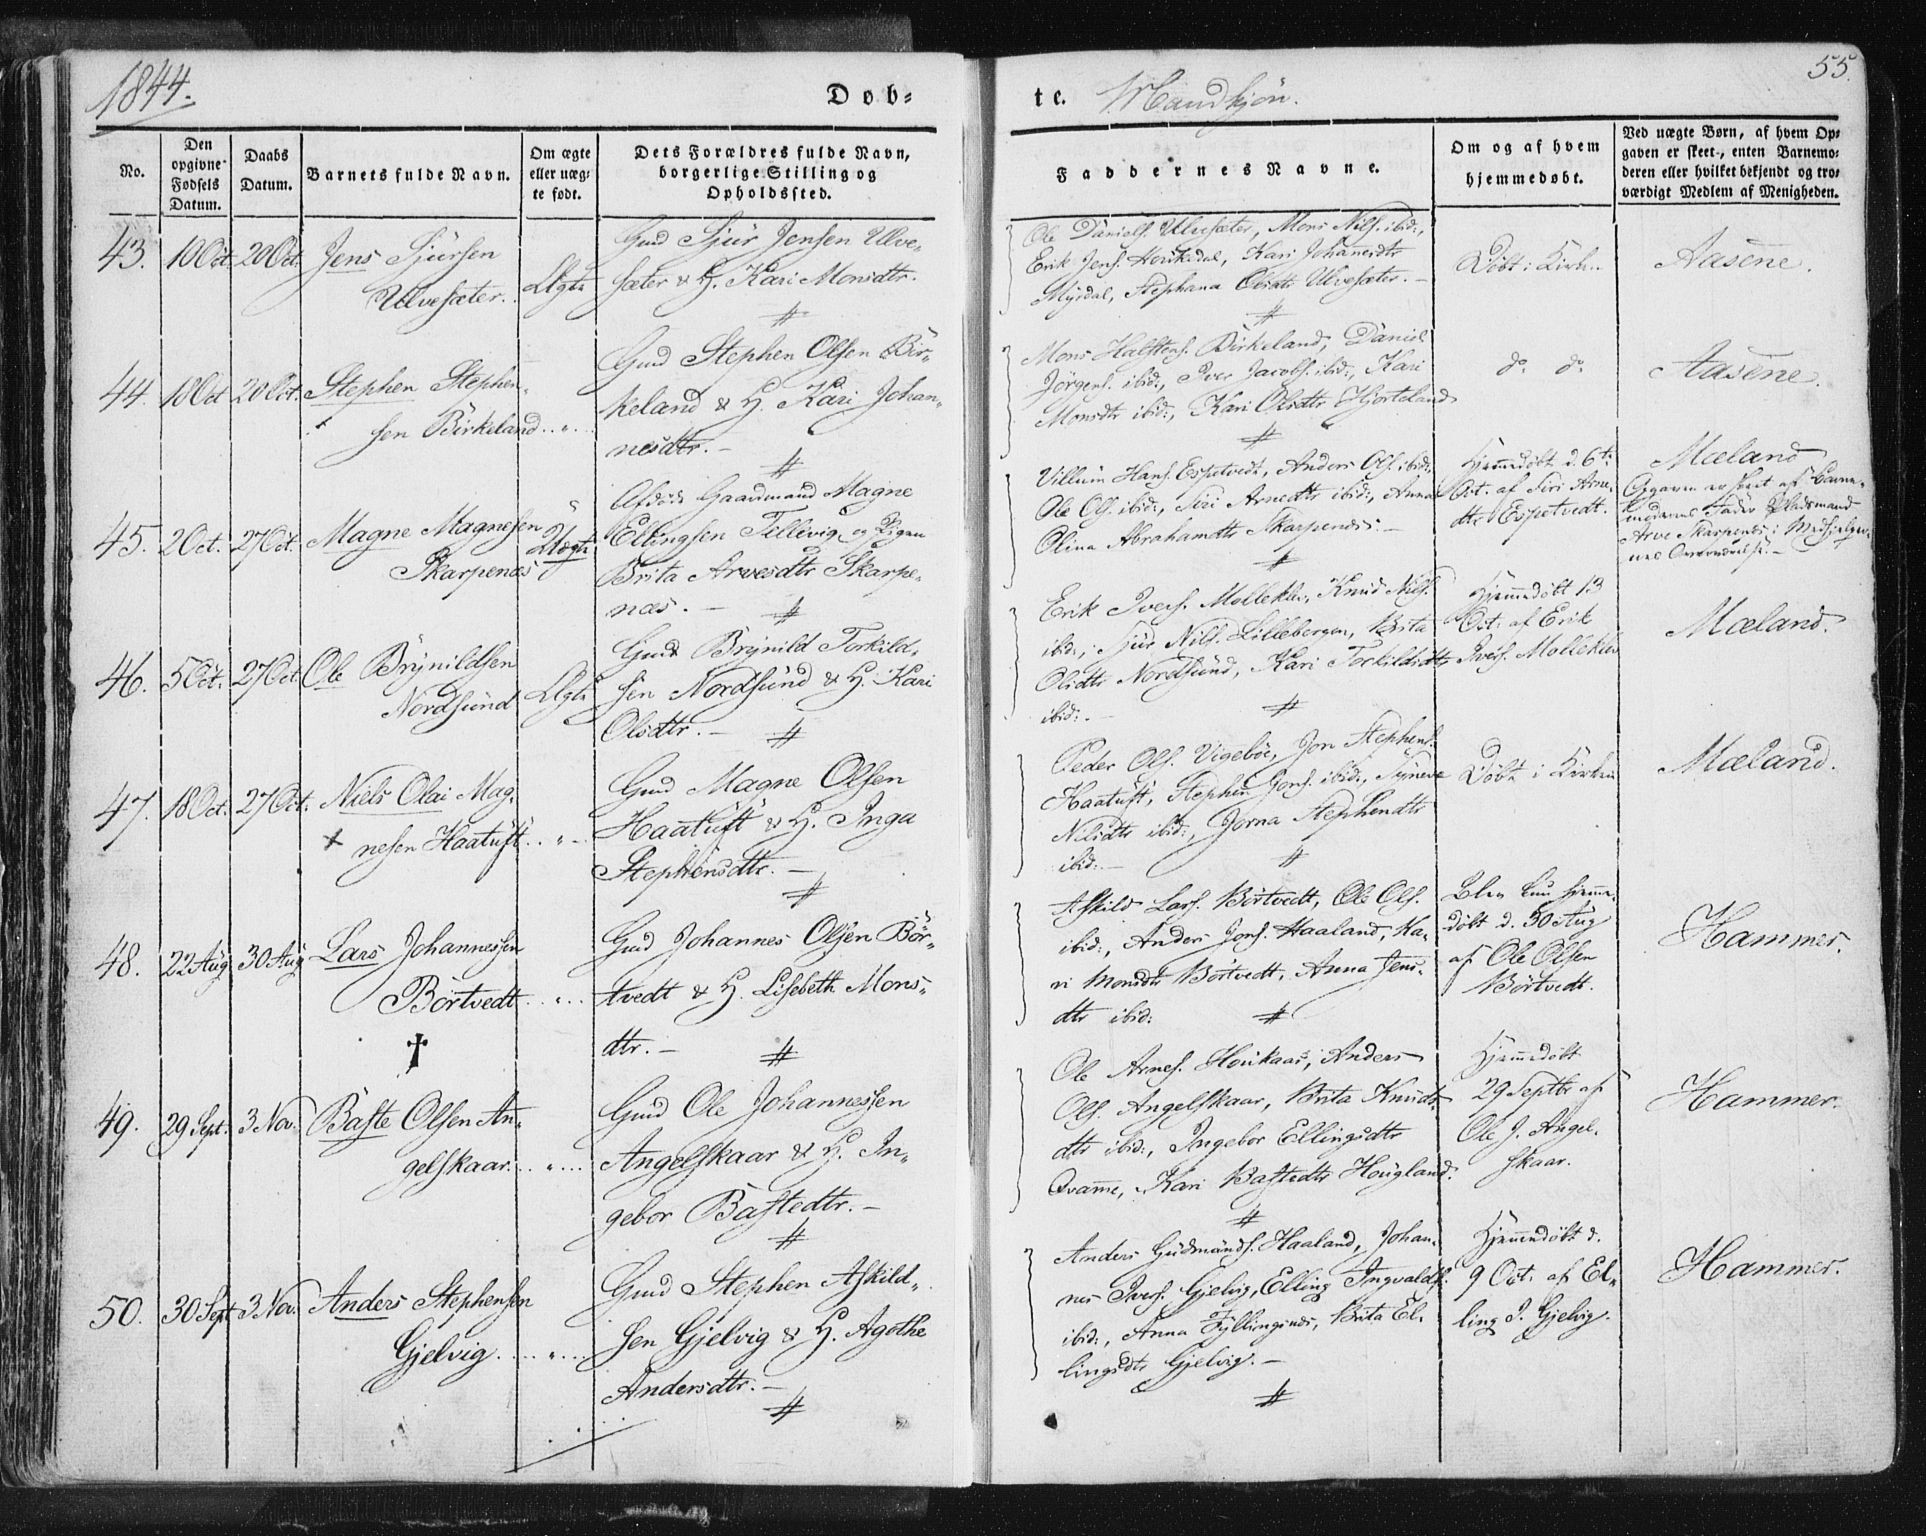 1844.
Døb-
te. Mandkjön.
55.
No.
Den opgivne Fødsels Datum.
Daabs Datum.
Barnets fulde Navn.
Om ægte eller uægte født.
Dets Forældres fulde Navn, borgerlige Stilling og Opholdssted.
Faddernes Navne.
Om og af hvem hjemmedøbt.
Ved uægte Børn, af hvem Opgaven er skeet, enten Barnemoderen eller hvilket bekjendt og troværdigt Medlem af Menigheden.
43. 10 Oct. 20 Oct. Jens Sjürsen
Ulvesæter. Ægte
Gmd Sjur Jensen Ulve-
sæter & H. Kari Monsdtr.
Ole Daniels. Ulvesæter, Mons Nils. ibid:,
Erik Jens. Houkedal, Kari Johannesdtr
Myrdal, Stephana Olsdtr Ulvesæter. -
Döbt i Kirken
Aasene.
44. 18 Oct 20 Oct. Stephen Stephen-
sen Birkeland . . " . .
Gmd Stephen Olsen Bir-
keland & H. Kari Johan-
nesdtr. -
Mons Halstens. Birkeland, Daniel
Jörgens. ibid:, Iver Jacobs. ibid:, Kari
Monsdtr ibid:, Kari Olsdtr Hjorteland
do do
Aasene.
45. 2 Oct. 27 Oct. Magne Magnesen
Skarpenæs Uægte
Afdöde Gaardmand Magne
Ellingsen Tellevig og Pigen
Brita Arvesdtr Skarpe-
næs. -
Villum Hans. Espetvedt, Anders Ols. ibid:,
Ole Ols. ibid:, Siri Arnedtr ibid:, Anna
Olina Abrahamdtr Skarpenæs. -
Hjemmedöbt d. 6te
Oct. af Siri Arne-
dtr Espetvedt.
Mæland
Opgaven er skeet af Barne-
moderens Fader Pladsmand
Arve Skarpenæs i
46. 5 Oct. 27 Oct. Ole Brynildsen
Nordsund Ægte
Gmd Brynild Torkild-
sen Nordsund & H. Kari
Olsdtr. -
Erik Ivers. Molleklev, Knud Nils.
ibid:, Sjur Nils. Lillebergen, Brita
Olsdtr Nordsund, Kari Torkildsdtr
ibid:. -
Hjemmedöbt 13
Oct. af Erik
Ivers. Molleklev
Mæland.
47. 18 Oct. 27 Oct. Niels Olai Mag-
nesen Haatuft . . " . .
Gmd Magne Olsen
Haatuft & H. Inga
Stephensdtr. -
Peder Ols. Vigeböe, Jon Stephens.
Haatuft, Stephen Jons. ibid:, Syneve
Nilsdtr ibid:, Jorna Stephensdtr
ibid: -
Döbt i Kirken
Mæland.
48. 22 Aug 30 Aug Lars Johannessen
Börtvedt . . " . .
†
Gmd Johannes Olsen Bör-
tvedt & H. Lisebeth Mons-
dtr. -
Askild Lars. Börtvedt, Ole Ols.
ibid:, Anders Jons. Haaland, Ka-
ri Monsdtr Börtvedt, Anna Jens-
dtr ibid:
Blev kun hjemme-
döbt d. 30 Aug
af Ole Olsen
Börtvedt.
Hammer.
49. 29 Sept. 3 Nov. Baste Olsen An-
gelskaar. . . " . . .
Gmd Ole Johannessen
Angelskaar & H. In-
gebor Bastedtr. -
Ole Arnes. Houkaas, Anders
Ols. Angelskaar, Brita Knuds-
dtr ibid:, Ingebor Ellingsdtr
Qvamme, Kari Bastedtr Hougland.
Hjemmedöbt
29 Septbr af
Ole J. Angel-
skaar.
Hammer.
50. 30 Sept 3 Nov. Anders Stephensen
Gjelvig. . . . " . . .
Gmd Stephen Askild-
sen Gjelvig & H. Agothe
Andersdtr. -
Anders Gudmunds. Haaland, Johan-
nes Ivers. Gjelvig, Elling Ingvalds.
ibid:, Anna Fyllingsnes, Brita El-
lingsdtr Gjelvig. -
Hjemmedöbt d.
9 Oct. af El-
ling I. Gjelvig.
Hammer.